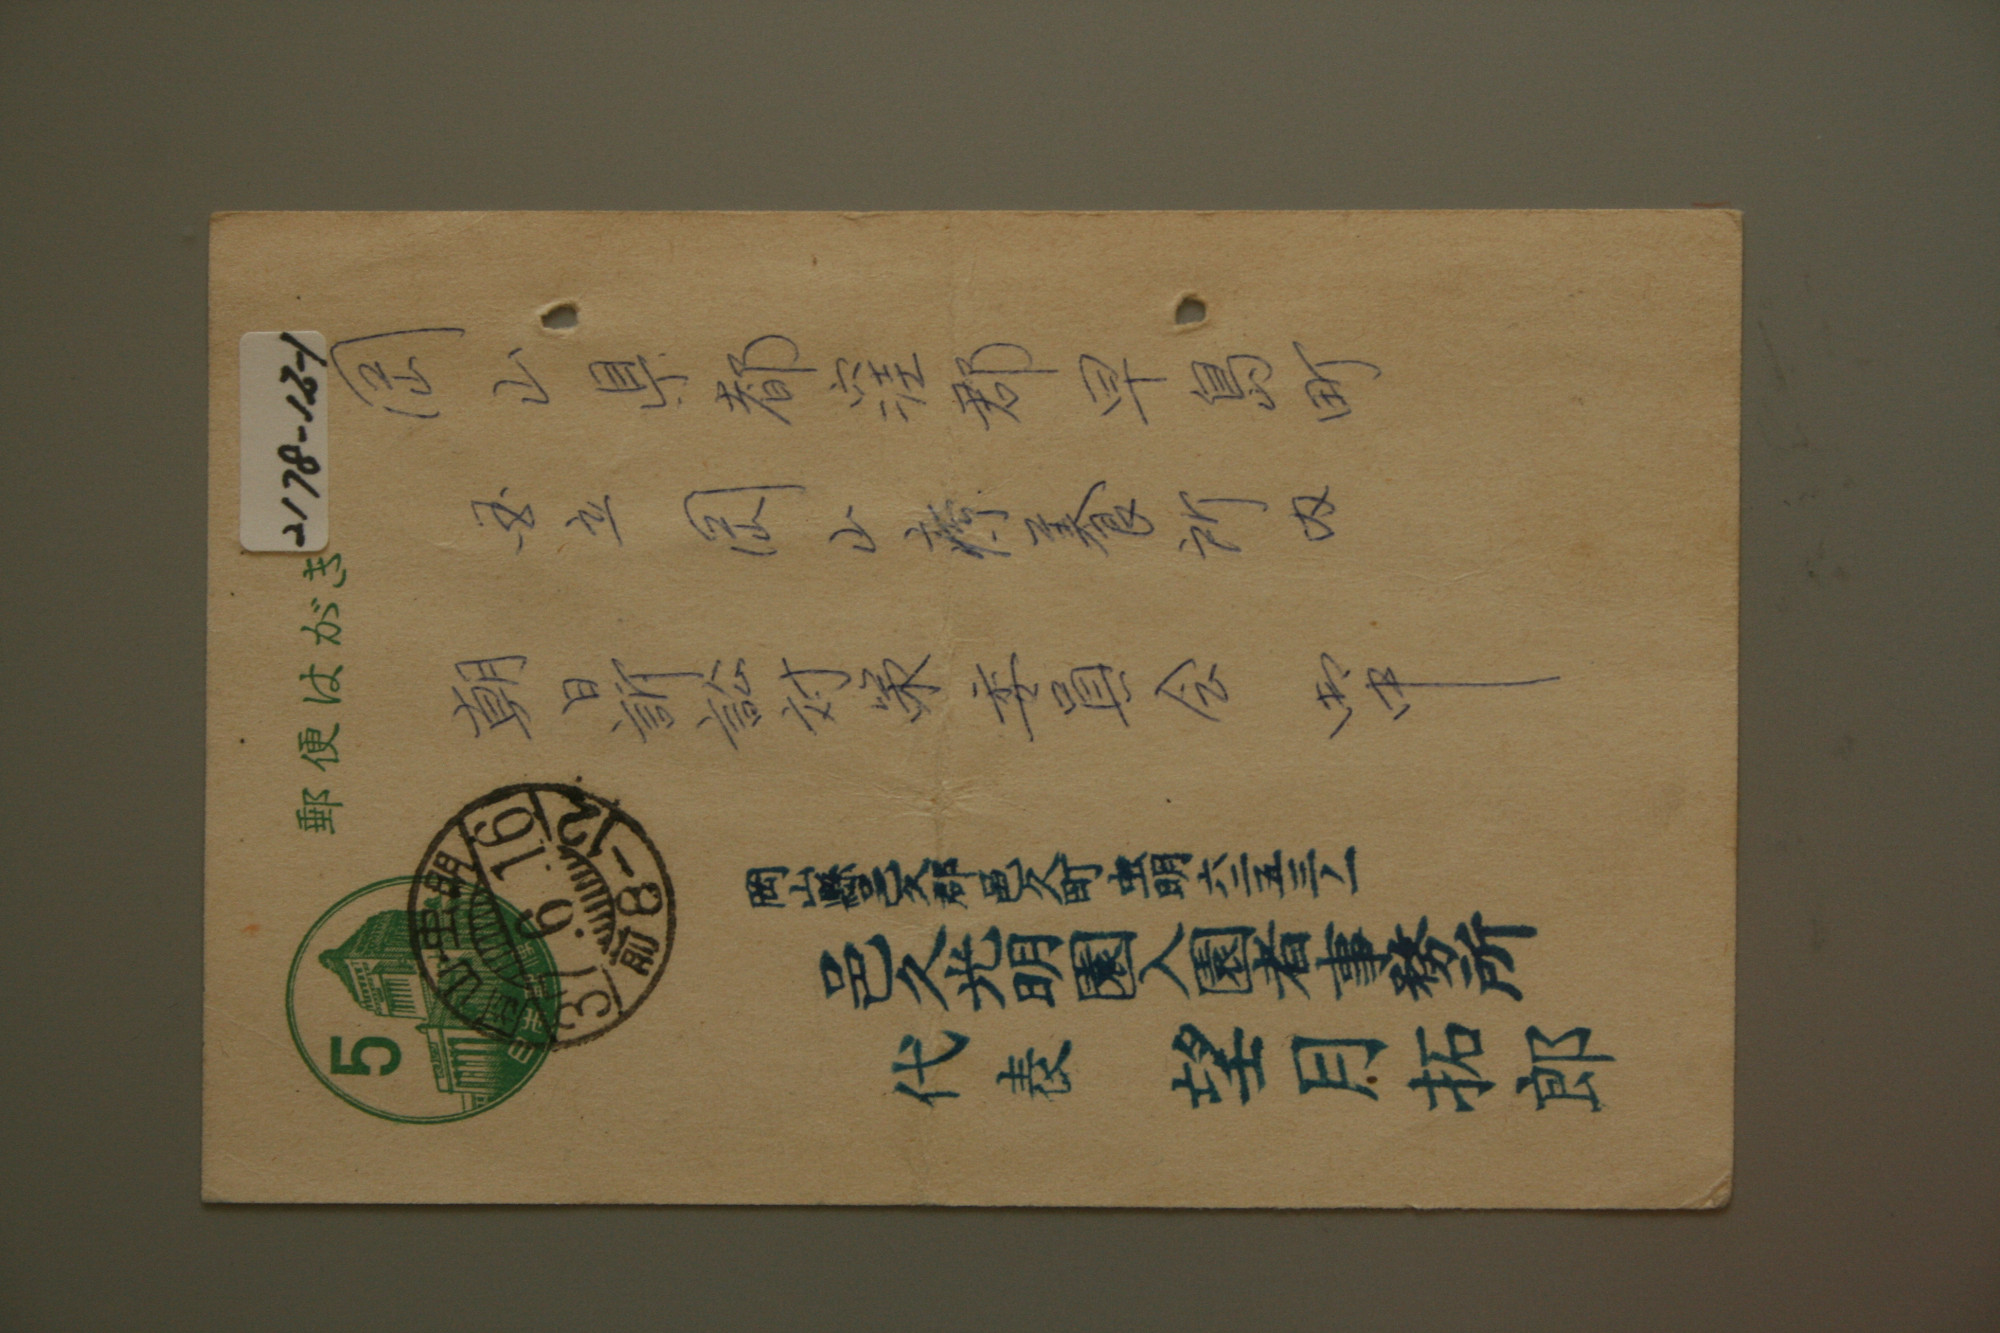 2178-12-1
郵便はがき
岡山県都窪郡早島町
国立岡山療養所内
朝日訴訟対策委員会 御中
5
岡山・虫明
31.6.16
前8-12
岡山縣邑久郡邑久町虫明六二五三ノ一
邑久光明園入園者事務所
代表 望月拓郎